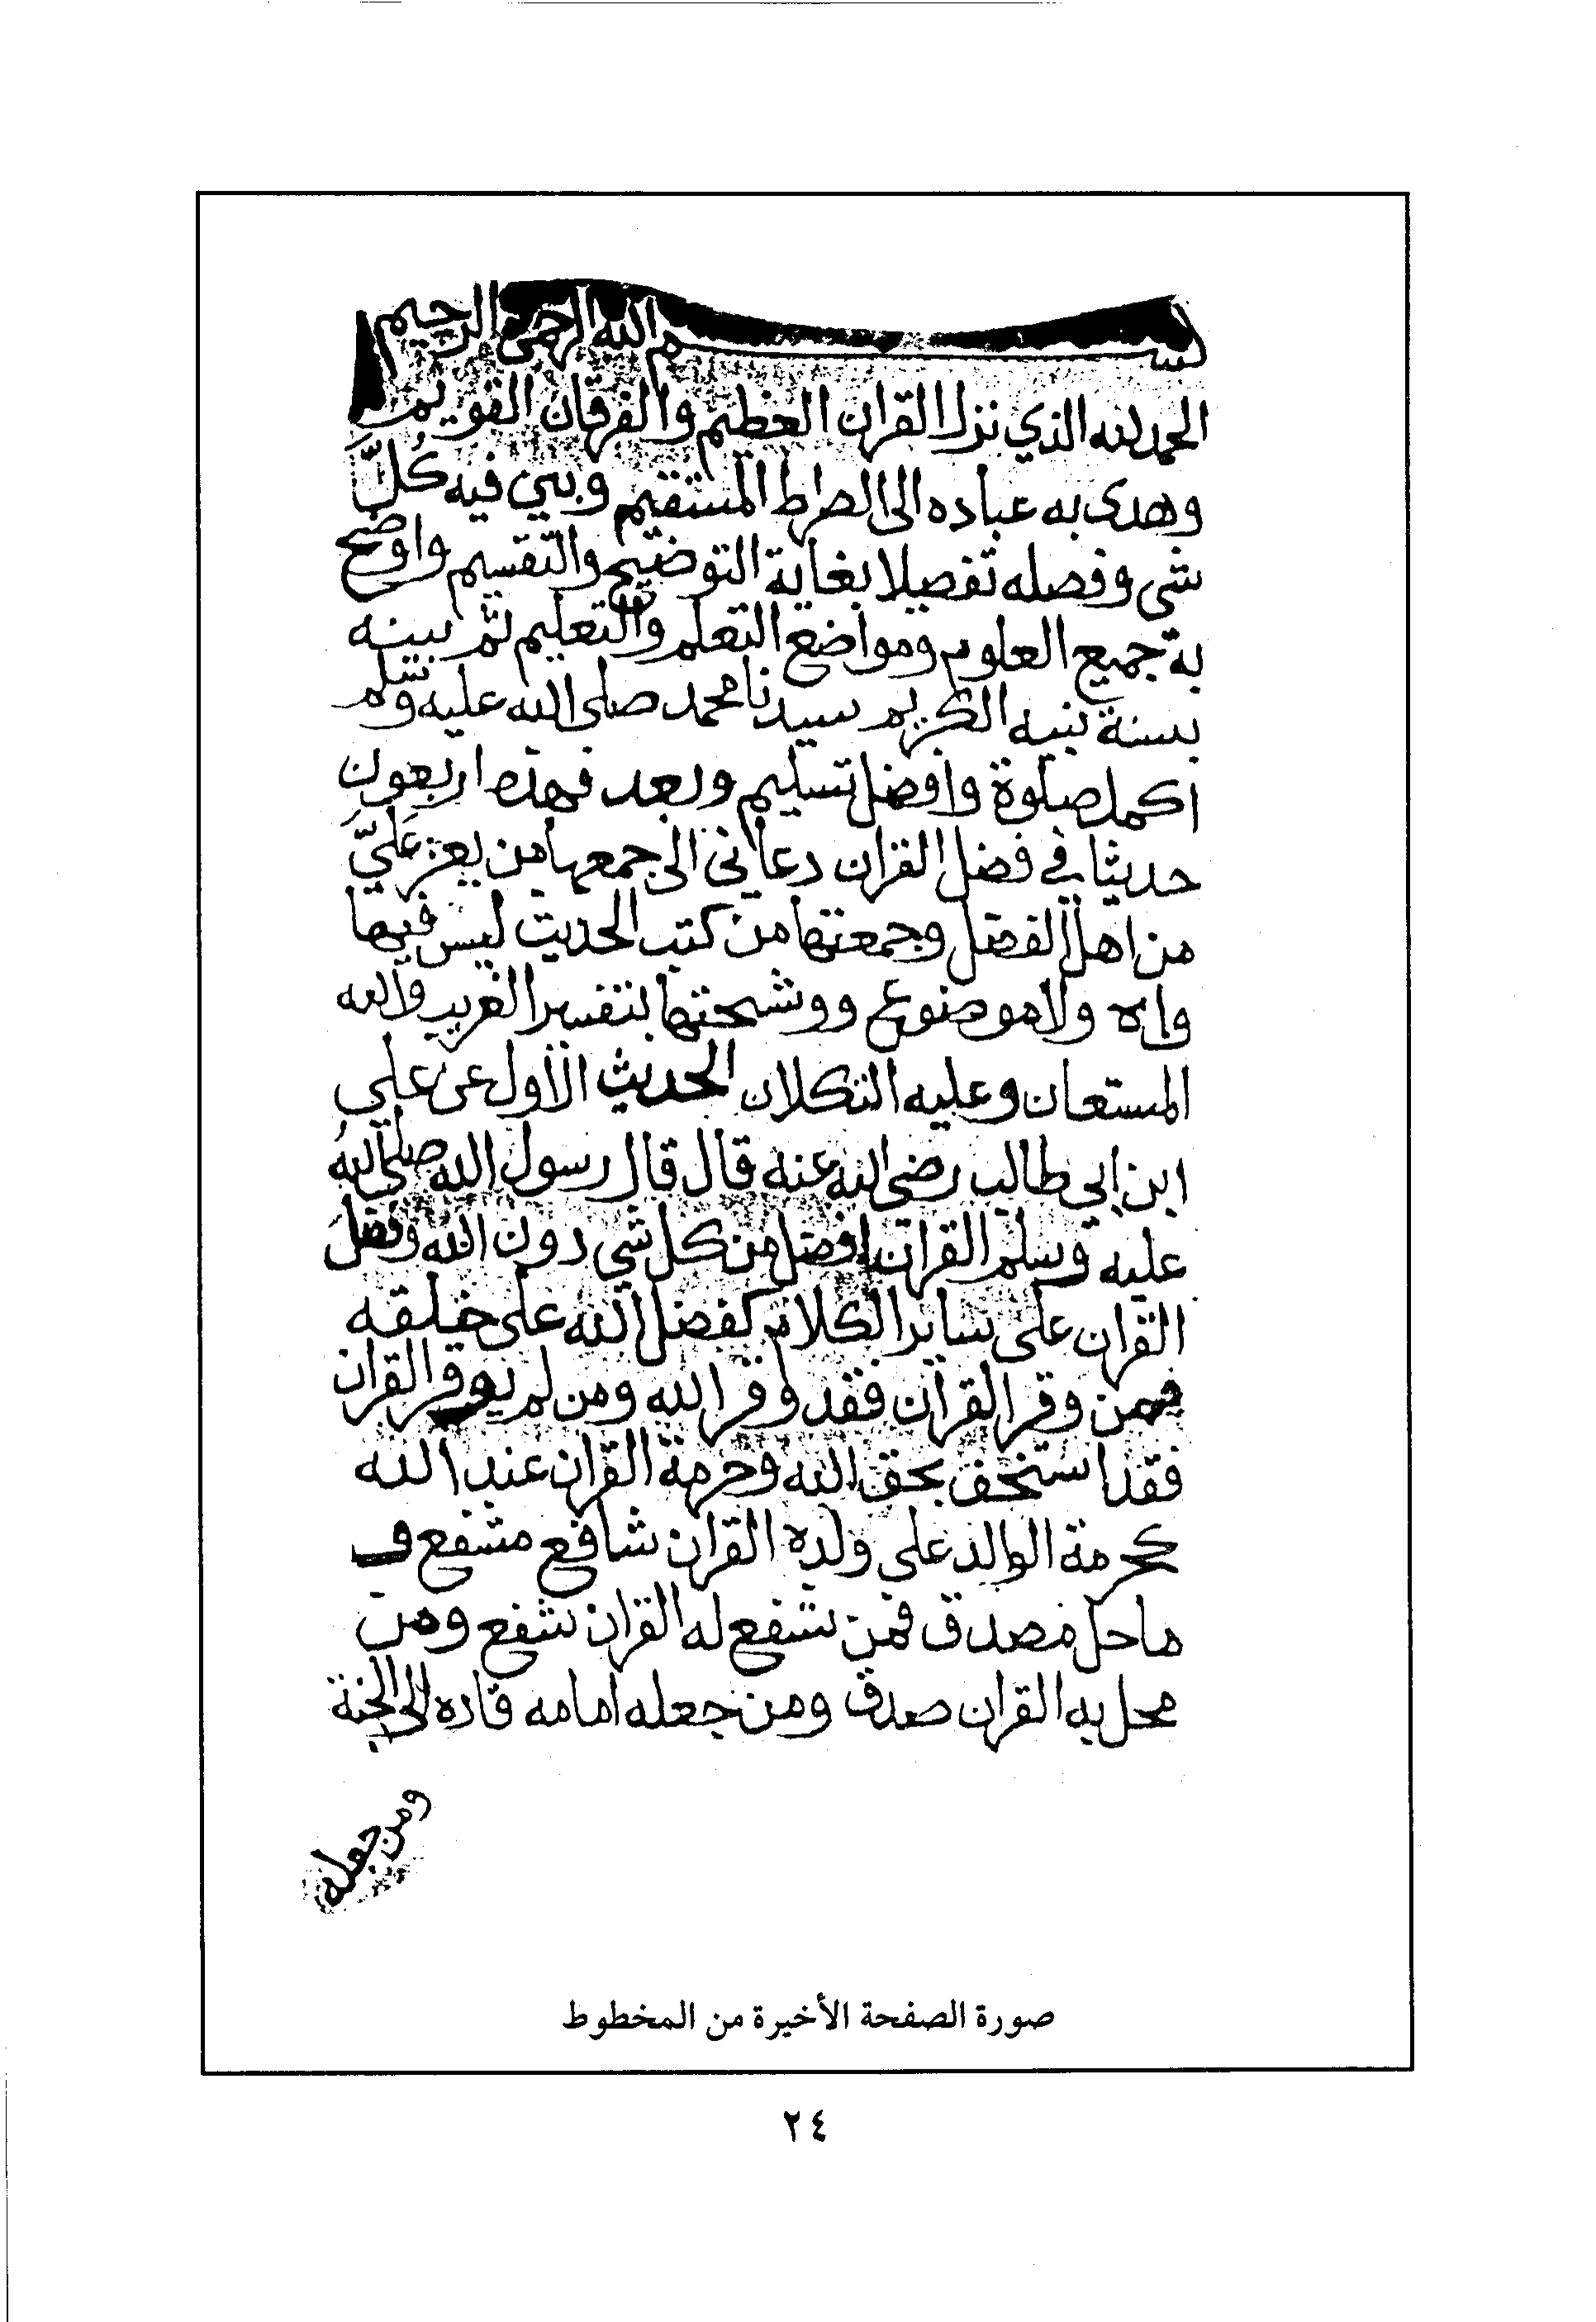 بسم الله الرحمن الرحيم
الحمد لله الذي نزل القران العظيم والفرقان القويم
وهدى به عباده الى الصراط المستقيم وبين فيه كُلَّ
شي وفصله تفصيلا بغاية التوضيح والتقسيم واوضح
به جميع العلوم ومواضع التعلم والتعليم ثم بينه
بسنة نبيه الكريم سيدنا محمد صلى الله عليه وسلم
اكمل صلوة وافضل تسليم وبعد فهذه اربعون
حديثا في فضل القران دعاني الى جمعها من يعز عَلَيَّ
من اهل الفضل وجمعتها من كتب الحديث ليس فيها
واه ولا موضوع ووشحتها بتفسير الغريب والله
المستعان وعليه التكلان الحديث الأول عن علي
ابن ابي طالب رضى الله عنه قال قال رسول الله صلى اللهُ
عليه وسلم القران افضل من كل شي دون الله وفضل
القران على ساير الكلام كفضل الله على خلقه
فمن وقر القرآن فقد وقر الله ومن لم يوقر القران
فقد استخف بحق الله وحرمة القران عند الله
كحرمة الوالد على ولده القران شافع مشفع و
ماحل مصدق فمن شفع له القران شفع ومن
محل به القران صدق ومن جعله امامه قاده الى الجنة
ومن جعله
صورة الصفحة الأخيرة من المخطوط
٢٤